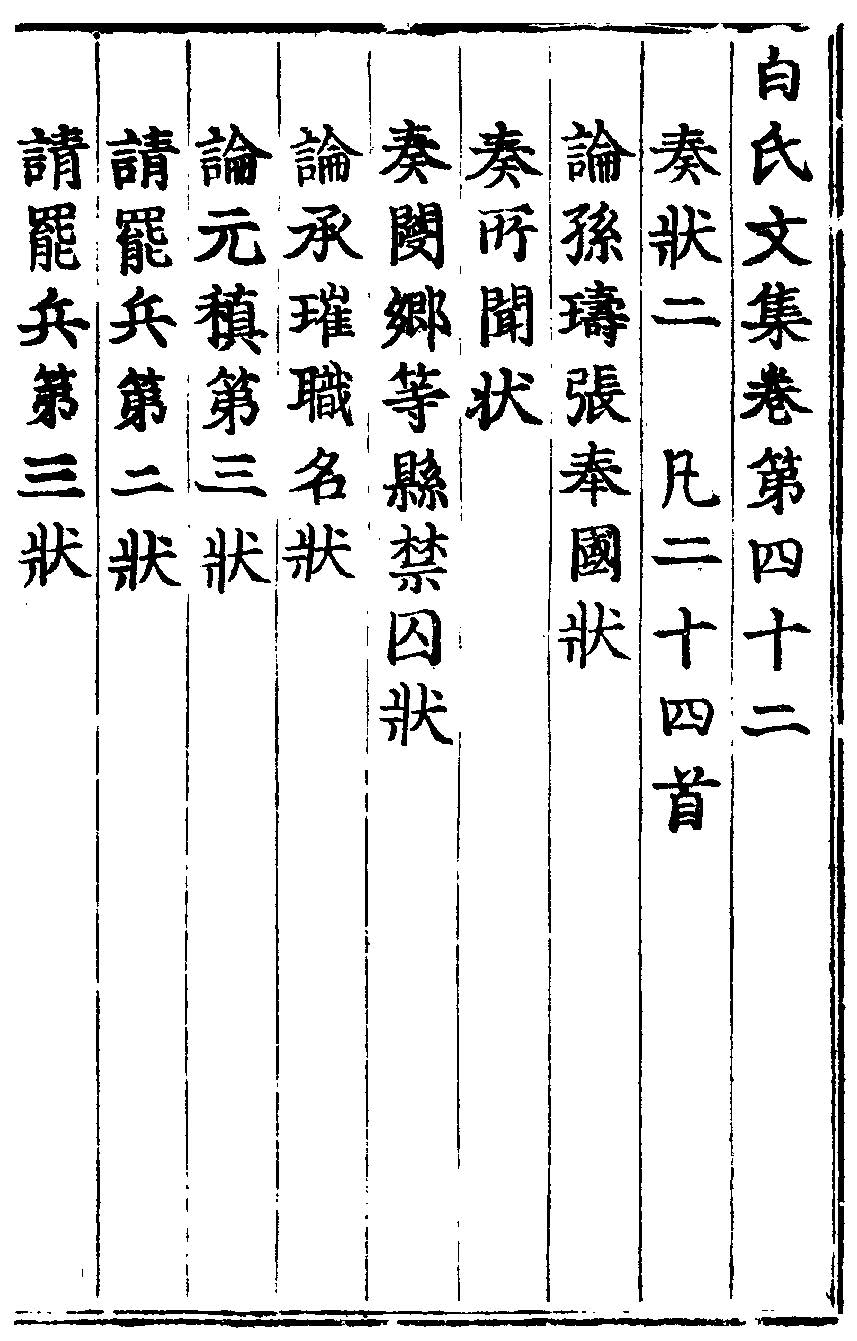 白氏文集卷第四十二
奏狀二　凡二十四首
論孫璹張奉國狀
奏所聞狀
奏閿鄉等縣禁囚狀
論承璀職名狀
論元稹第三狀
請罷兵第二狀
請罷兵第三狀